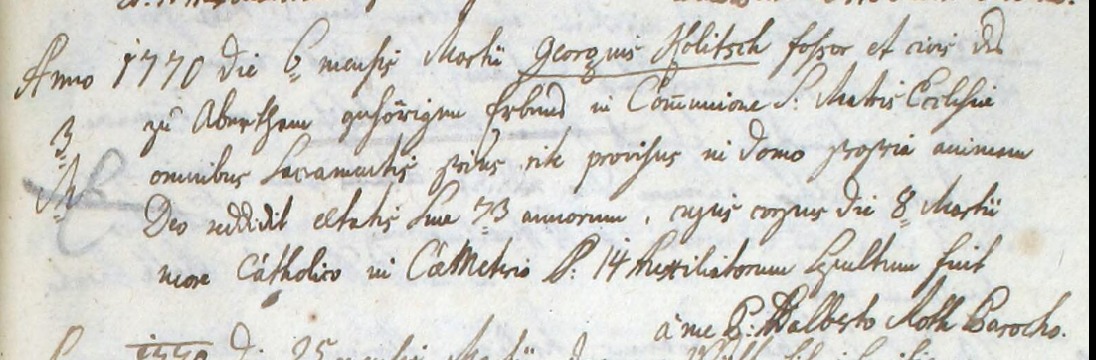 Anno 1770 die 6 mensis Martii Georgius Holitsch fossor et civis des
zu Abertham gehörigen Erbend in Com̄unione S: Matris Ecclesiæ
3
omnibus Sacramentis prius rite provisus in domo propria animam
Deo reddidit ætatis suæ 73 annorum, cujus corpus die 8 Martii
more Catholico in Cœmeterio S: 14 Auxiliatorum sepultum fuit
à me P: Adalberto Roth Parocho.
1770 die 25 mensis Martii